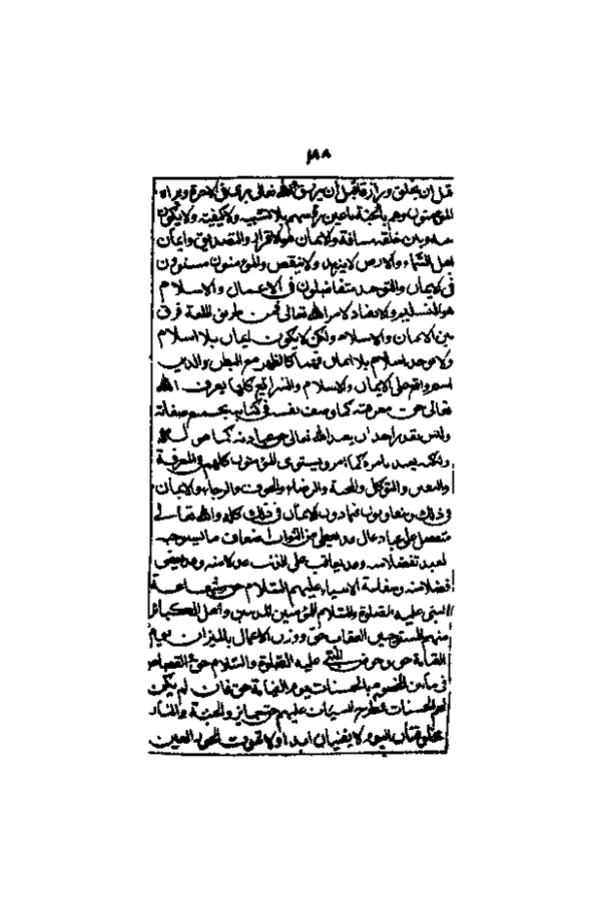 قبل ان يخلق ورازقا قبل ان يرزق والله تعالى يرى فى الاخرة ويراه
المؤمنون وهم بالجنة باعين رؤسهم بلا تشبيه ولا كيفية ولا يكون
بينه وبين خلقه مسافة والايمان هو الاقرار والتصديق وايمان
اهل السماء والارض لا يزيد ولا ينقص والمؤمنون مستوون
فى الايمان والتوحيد متفاضلون فى الاعمال والاسلام
هو التسليم والانقياد لامر الله تعالى فمن طريق اللغة فرق
بين الايمان والاسلام ولكن لا يكون ايمان بلا اسلام
ولا يوجد اسلام بلا ايمان فهما كالظهر مع البطن والدين
اسم واقع على الايمان والاسلام والشرايع كلها يعرف الله
تعالى حق معرفته كما وصف نفسه فى كتابه بجميع صفاته
وليس يقدر احد ان يعبد الله تعالى حق عبادته كما هو له
ولكنه يعبده بامره كما امر ويستوى المؤمنون كلهم فى المعرفة
واليقين والتوكل والمحبة والرضاء والخوف والرجاء والايمان
فى ذلك ويتفاوتون فيما دون الايمان فى ذلك كله والله تعالى
متفضل على عباده عادل قد يعطى من الثواب اضعاف ما يستوجبه
العبد تفضلا منه وقد يعاقب على الذنب عدلا منه وقد يعفو
فضلا منه وشفاعة الانبياء عليهم السلام حق وشفاعة
النبى عليه الصلوة والسلام للمؤمنين المذنبين واهل الكبائر
منهم المستوجبين العقاب حق ووزن الاعمال بالميزان يوم
القيامة حق وحوض النبى عليه الصلوة والسلام حق والقصاص
فى ما بين الخصوم بالحسنات يوم القيامة حق فان لم يكن
لهم الحسنات فطرح السيئات عليهم حق جايز والجنة والنار
مخلوقتان اليوم لا يفنيان ابدا ولا تموت الحور العين